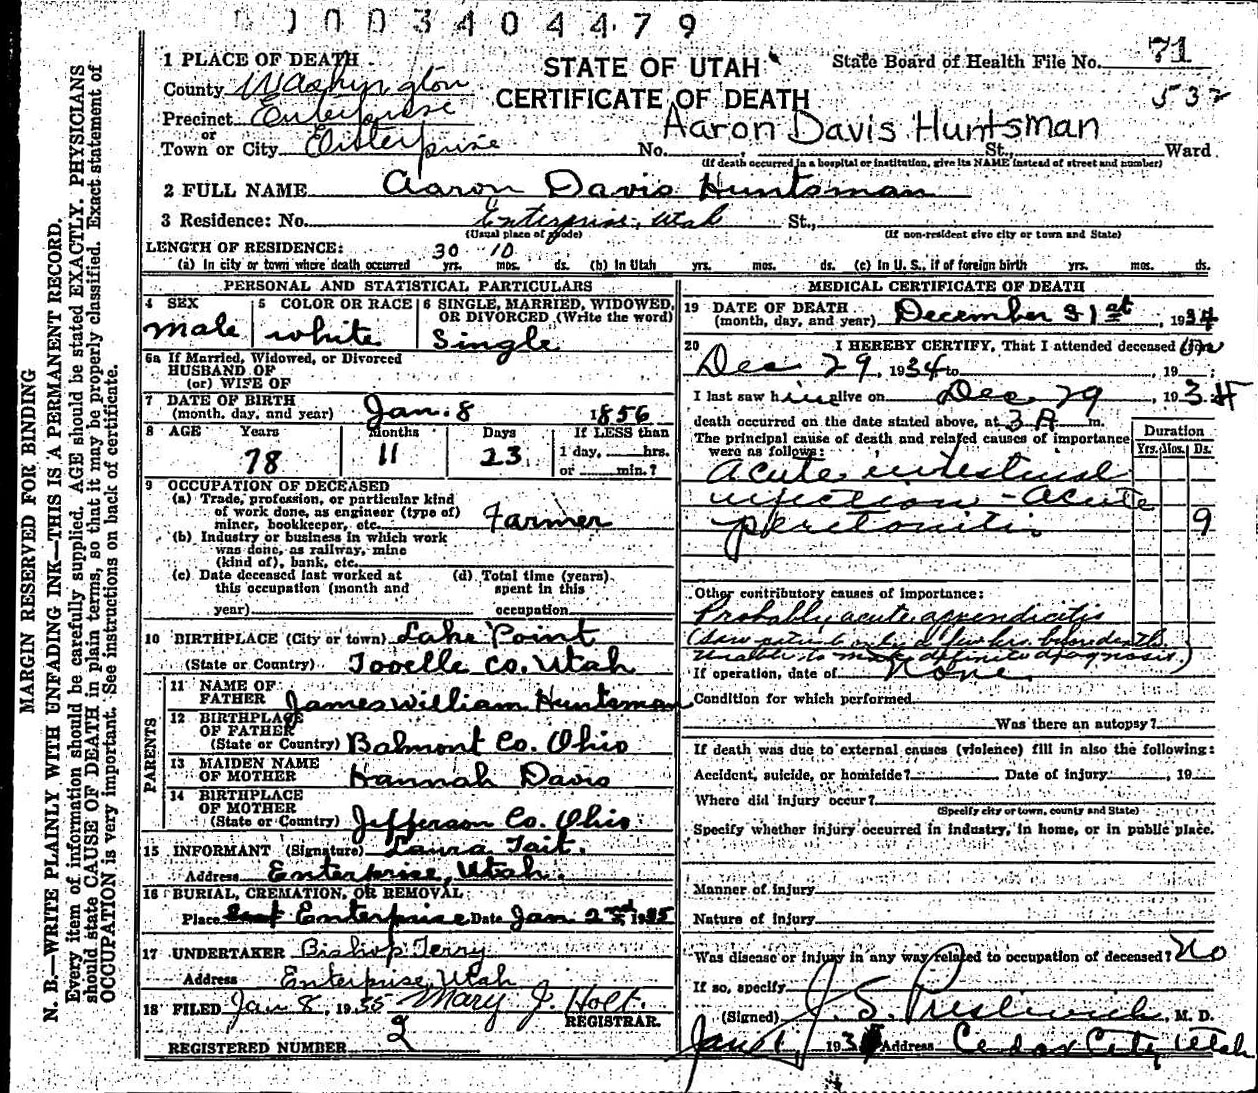 0003404479
1 PLACE OF DEATH
STATE OF UTAH
State Board of Health File No. 71
County Washington
CERTIFICATE OF DEATH
532
Precinct Enterprise
Aaron Davis Huntsman
or
Town or City Enterprise No. St., Ward
(If death occurred in a hospital or institution, give its NAME instead of street and number)
2 FULL NAME Aaron Davis Huntsman
3 Residence: No. Enterprise, Utah St.,
(Usual place of abode) (If non-resident give city or town and State)
LENGTH OF RESIDENCE:
(a) In city or town where death occurred 30 yrs. 10 mos. ds. (b) In Utah yrs. mos. ds. (c) In U. S., if of foreign birth yrs. mos. ds.
PERSONAL AND STATISTICAL PARTICULARS
4 SEX
male
5 COLOR OR RACE
white
6 SINGLE, MARRIED, WIDOWED,
OR DIVORCED (Write the word)
Single
6a If Married, Widowed, or Divorced
HUSBAND OF
(or) WIFE OF
7 DATE OF BIRTH
(month, day, and year) Jan. 8 1856
8 AGE Years Months Days If LESS than
78 11 23 1 day, hrs.
or min.?
9 OCCUPATION OF DECEASED
(a) Trade, profession, or particular kind
of work done, as engineer (type of)
miner, bookkeeper, etc. Farmer
(b) Industry or business in which work
was done, as railway, mine
(kind of), bank, etc.
(c) Date deceased last worked at
this occupation (month and
year)
(d) Total time (years)
spent in this
occupation
10 BIRTHPLACE (City or town) Lake Point
(State or Country) Tooelle Co. Utah
PARENTS
11 NAME OF
FATHER James William Huntsman
12 BIRTHPLACE
OF FATHER
(State or Country) Balmont Co. Ohio
13 MAIDEN NAME
OF MOTHER Hannah Davis
14 BIRTHPLACE
OF MOTHER
(State or Country) Jefferson Co. Ohio
15 INFORMANT (Signature) Laura Tait.
Address Enterprise, Utah.
16 BURIAL, CREMATION, OR REMOVAL
Place Enterprise Date Jan 2nd 1935
17 UNDERTAKER Bishop Terry
Address Enterprise, Utah
18 FILED Jan 8, 1935 Mary J. Holt.
REGISTRAR.
REGISTERED NUMBER 2
MEDICAL CERTIFICATE OF DEATH
19 DATE OF DEATH
(month, day, and year) December 31st, 1934
20 I HEREBY CERTIFY, That I attended deceased on
Dec 29, 1934 to , 19 ;
I last saw him alive on Dec 29, 1934
death occurred on the date stated above, at 3 A m.
The principal cause of death and related causes of importance
were as follows:
Duration
Yrs. Mos. Ds.
acute intestinal
infection - acute
peritonitis 9
Other contributory causes of importance:
Probably acute appendicitis
(Saw patient only a few hrs. before death
unable to make definite diagnosis.)
If operation, date of None.
Condition for which performed
Was there an autopsy?
If death was due to external causes (violence) fill in also the following:
Accident, suicide, or homicide? Date of injury , 19
Where did injury occur?
(Specify city or town, county and State)
Specify whether injury occurred in industry, in home, or in public place.
Manner of injury
Nature of injury
Was disease or injury in any way related to occupation of deceased? No
If so, specify
(Signed) J. S. Prestwich, M. D.
Jan 1, 193 Address Cedar City, Utah
MARGIN RESERVED FOR BINDING
N. B.—WRITE PLAINLY WITH UNFADING INK—THIS IS A PERMANENT RECORD.
Every item of information should be carefully supplied. AGE should be stated EXACTLY. PHYSICIANS
should state CAUSE OF DEATH in plain terms, so that it may be properly classified. Exact statement of
OCCUPATION is very important. See instructions on back of certificate.